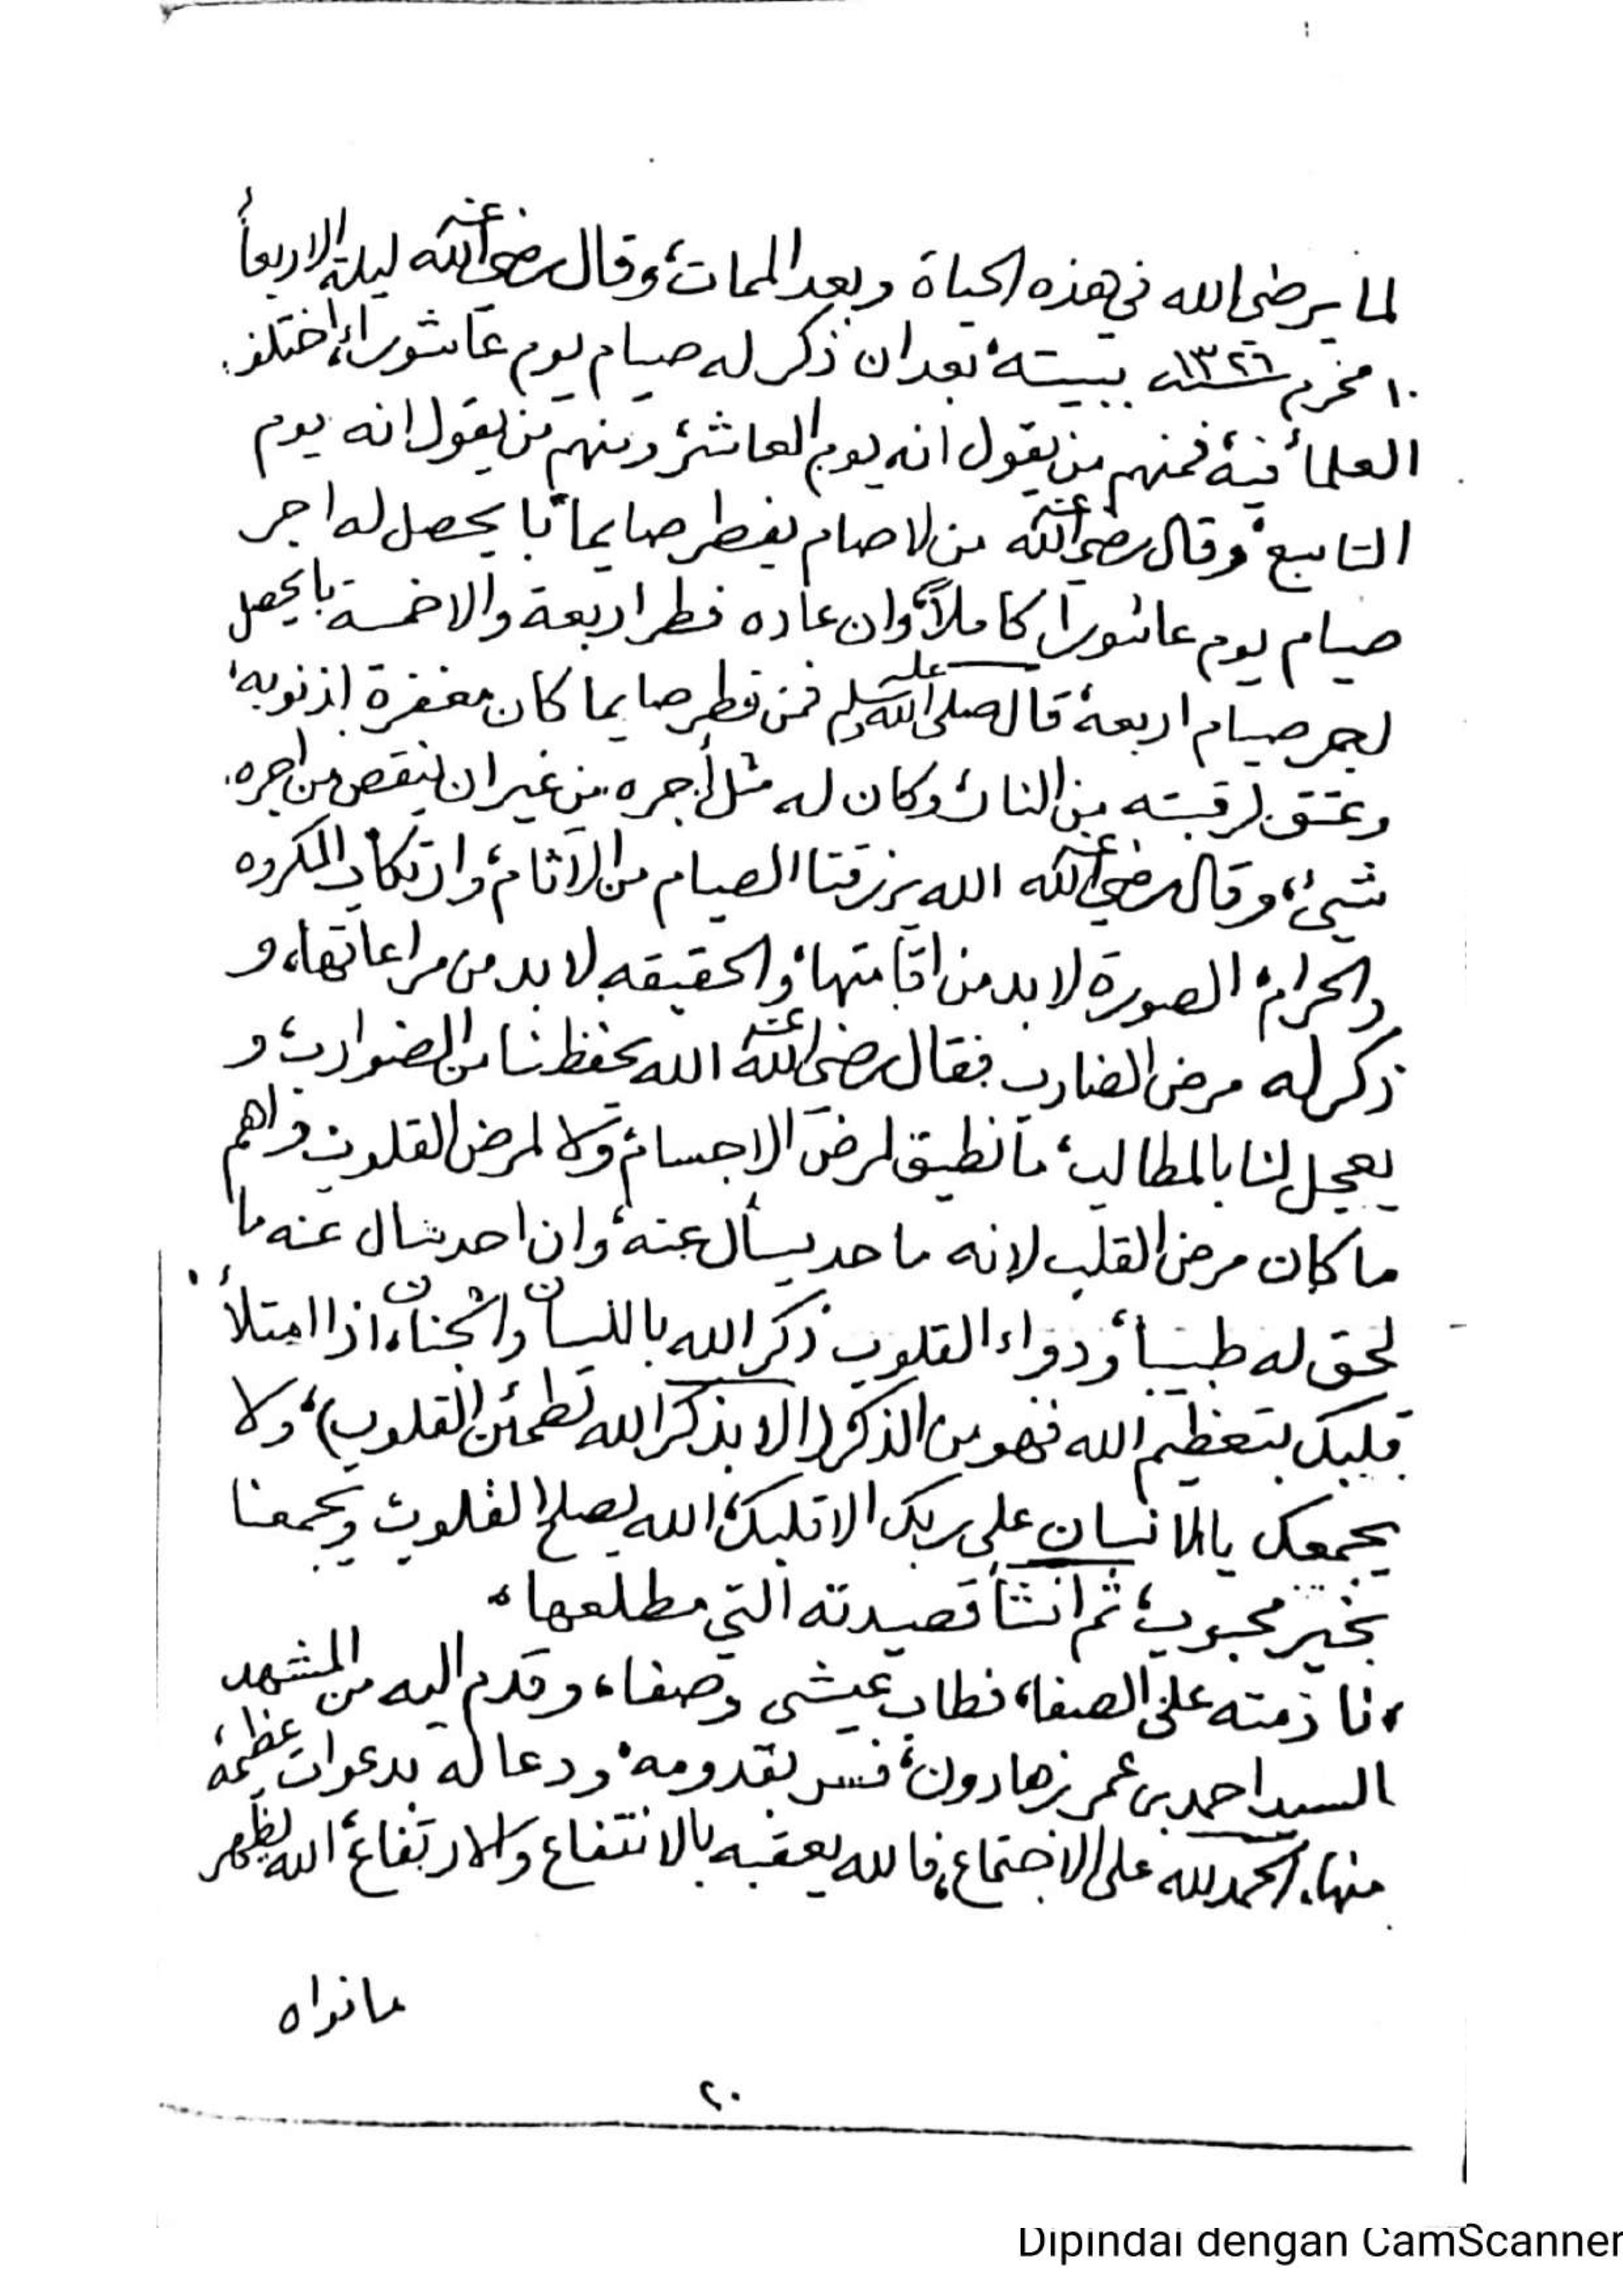 لما يرضى الله في هذه الحياة وبعد الممات، وقال رضي الله عنه ليلة الاربعاء
١٠ محرم سنة ١٣٢٦ ببيته، بعد ان ذكر له صيام يوم عاشوراء، اختلف
العلماء فيه، فمنهم من يقول انه يوم العاشر، ومنهم من يقول انه يوم
التاسع، وقال رضي الله عنه من لا صام يفطر صايما، با يحصل له اجر
صيام يوم عاشورا كاملاً، وان عاده فطر اربعة والا خمسة با يحصل
اجر صيام اربعة، قال صلى الله عليه وسلم فمن فطر صايما كان مغفرة لذنوبه،
وعتق لرقبته من النار، وكان له مثل أجره من غير ان ينقص من اجره
شيئ، وقال رضي الله عنه الله يرزقنا الصيام من الآثام، وارتكاب المكروه
والحرام، الصورة لا بد من اقامتها، والحقيقه لا بد من مراعاتها، و
ذكر له مرض الضارب فقال رضي الله عنه الله يحفظنا من الضوارب، و
يعجل لنا بالمطالب، ما نطيق لمرض الاجسام، ولا لمرض القلوب، واهم
ما كان مرض القلب لانه ما حد يسأل عنه، وان احد سال عنه ما
لحق له طبيبا، ودواء القلوب ذكر الله باللسان والجنان، اذا امتلأ
قلبك بتعظيم الله فهو من الذكر (الا بذكر الله تطمئن القلوب)، ولا
يجمعك ياالانسان على ربك الا قلبك، الله يصلح القلوب ويجمعنا
بخير محبوب، ثم انشأ قصيدته التي مطلعها،
،نا ذمته على الصفا، فطاب عيشى وصفا، وقدم اليه من المشهد
السيد احمد بن عمر بن هارون، فسر بقدومه، ودعا له بدعوات عظيمة،
منها، الحمد لله على الاجتماع، فالله يعقبه بالانتفاع والارتفاع، الله يظهر
مانواه
٢٠
Dipindai dengan CamScanner